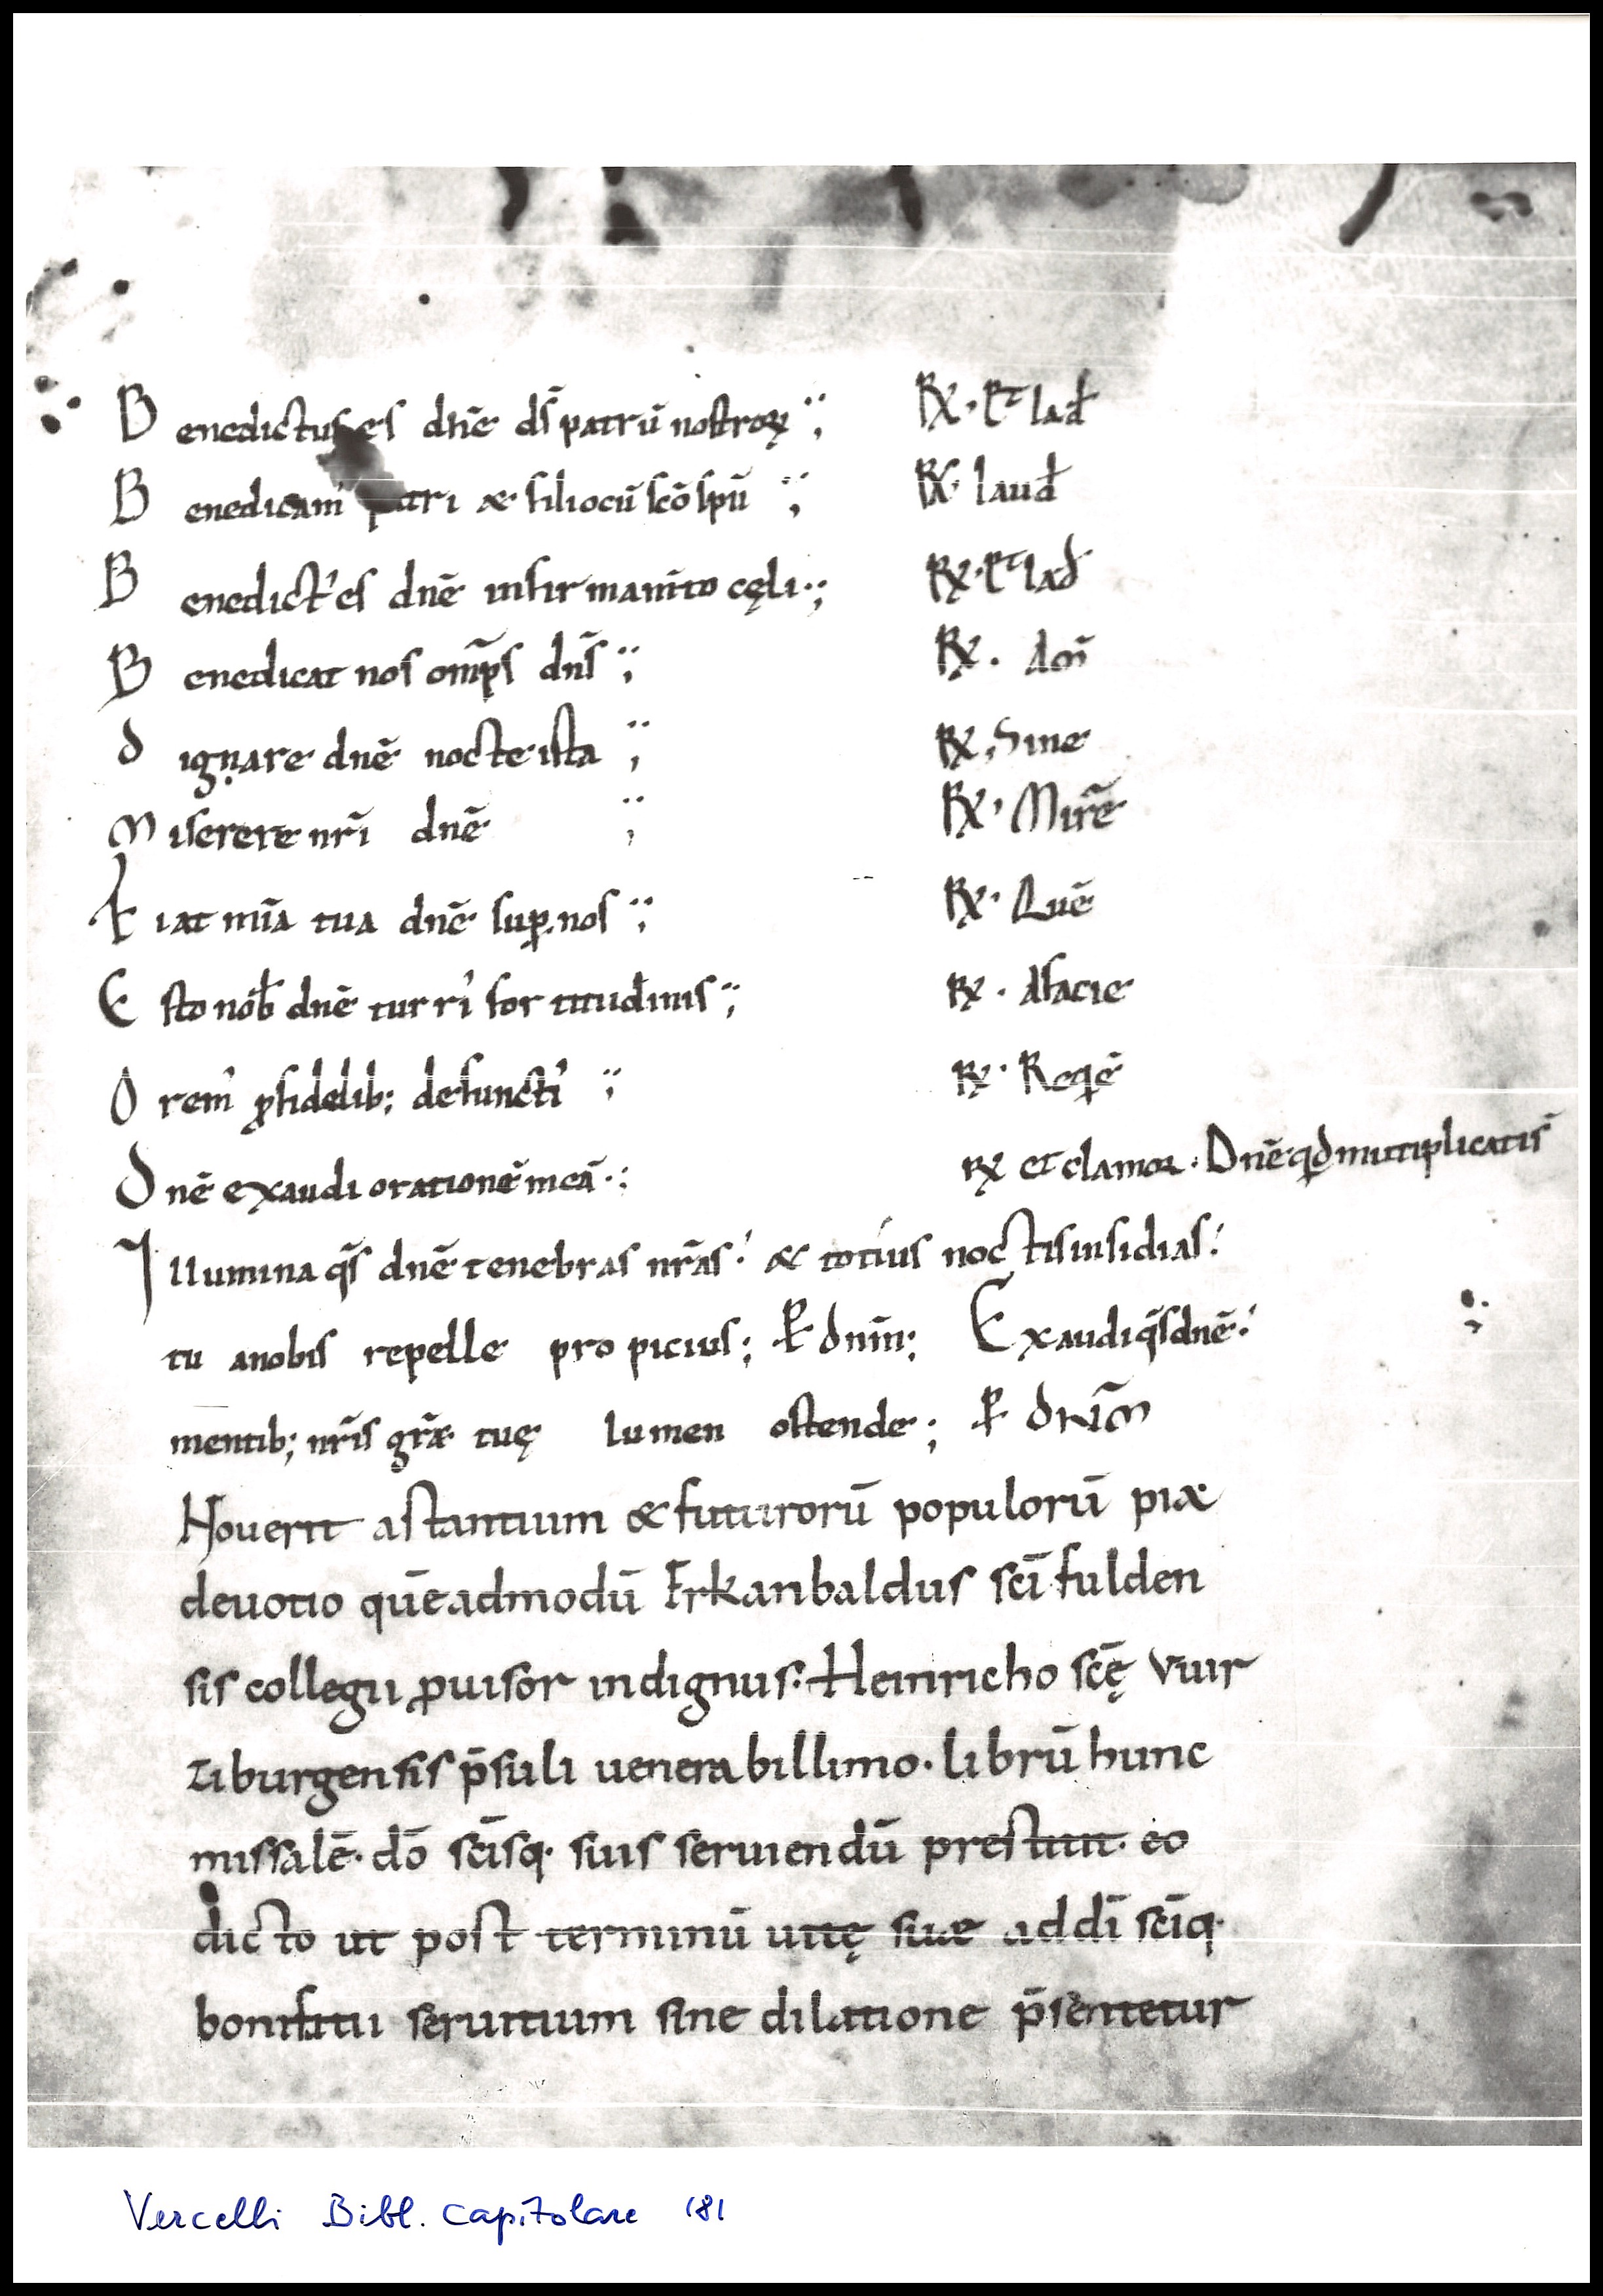 Benedictus es dn̄e ds̄ patrū nostroꝝ ℞. Et lađ
Benedicam' patri & filio cū sc̄o spū ℞. laud̄
Benedict' es dn̄e in firmam̄to cęli ℞. Et lađ
Benedicat nos om̄ps dn̄s ℞. Am̄
Dignare dn̄e nocte ista ℞. Sine
Miserere nr̄i dn̄e ℞. Mir̄e
Fiat mīa tua dn̄e suꝑ nos ℞. Quē
Esto nob̄ dn̄e turri' fortitudinis ℞. Afacie
Orem' ꝓ fidelib; defuncti' ℞. Reqē
Dn̄e exaudi orationē meā ℞ et clamor. Dn̄e qđ multiplicatis̄
Illumina qs̄ dn̄e tenebras nr̄as & totius noctis insidias
tu a nobis repelle propicius; Ꝑ dn̄m; Exaudi qs̄ dn̄e
mentib; nr̄is gr̄æ tuę lumen ostende; Ꝑ dnm̄
Noverit astantium & futurorū populorū piæ
deuotio quēadmodū Erkanbaldus sc̄i fulden
sis collegii ꝓuisor indignus. Heinricho sc̄ę vvir
ziburgensis p̄suli uenerabillimo. librū hunc
missalē. dō sc̄isq. suis seruiendū prestitit. eo
dicto ut post terminū uitę suæ ad dī sc̄iq.
bonifatii seruitium sine dilatione p̄sentetur
Vercelli Bibl. Capitolare 181